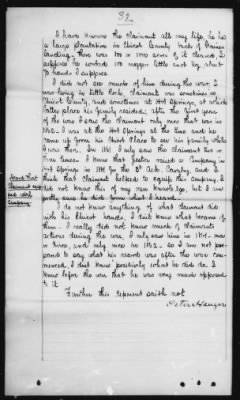 32
I have known the claimant all my life, he is
a large plantation in Chicot County back of Gaines
Landing. There was 800 or 1000 acres of it cleared, I
suppose he worked 100 niggers little and big, about
70 hands I suppose.
I did not see much of him during the war, I
was living in Little Rock, claimant was sometimes in
Chicot County, and sometimes at Hot Springs, at which
latter place his family resided, after the first year
of the war I saw the claimant only once that was in
1862. I was at the Hot Springs at the time and he
came up from his Chicot place to see his family while
I was there. In 1861 I only saw the claimant two or
three times. I knew that Jester raised a Company in
Hot Springs in 1861 for the 3d Ark. Cavalry, and I
think that Claimant helped to equip this company, I
did not know this of my own knowledge, but I am
pretty sure he did from what I heard.
Heard that
Claimant equip-
ped rebel
Company
I do not know anything of what claimant did
with his Chicot hands, I don't know what became of
them. I really did not know much of claimants
actions during the war, I only saw him in 1861 once
or twice, and only once in 1862. so I am not pre-
pared to say what his record was after the war com-
menced, I don't know positively what he did do. I
knew before the war that he was very much opposed
to it.
Further this deponent saith not
Peter Hanger